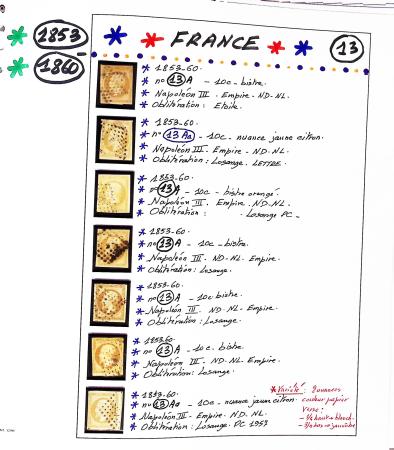 1853
1860
FRANCE
13
1853-60.
n° 13 A - 10c - bistre.
Napoléon III - Empire - ND-NL.
Oblitération : Etoile.
1853-60.
n° 13 Aa - 10c - nuance jaune citron.
Napoléon III - Empire - ND-NL.
Oblitération : Losange. LETTRE.
1853-60.
n° 13 A - 10c - bistre orangé.
Napoléon III. Empire. ND-NL
Oblitération : - Losange PC -
1853-60.
n° 13 A - 10c - bistre.
Napoléon III. ND-NL. Empire.
Oblitération : Losange.
1853-60.
n° 13 A - 10c bistre.
Napoléon III. ND-NL. Empire.
Oblitération : Losange.
1853-60.
n° 13 A - 10c. bistre.
Napoléon III. ND-NL. Empire
Oblitération : Losange.
1853-60.
n° 13 Aa - 10c - nuance jaune citron.
Napoléon III - Empire. ND. NL.
Oblitération : Losange. PC
Variété :
couleur papier